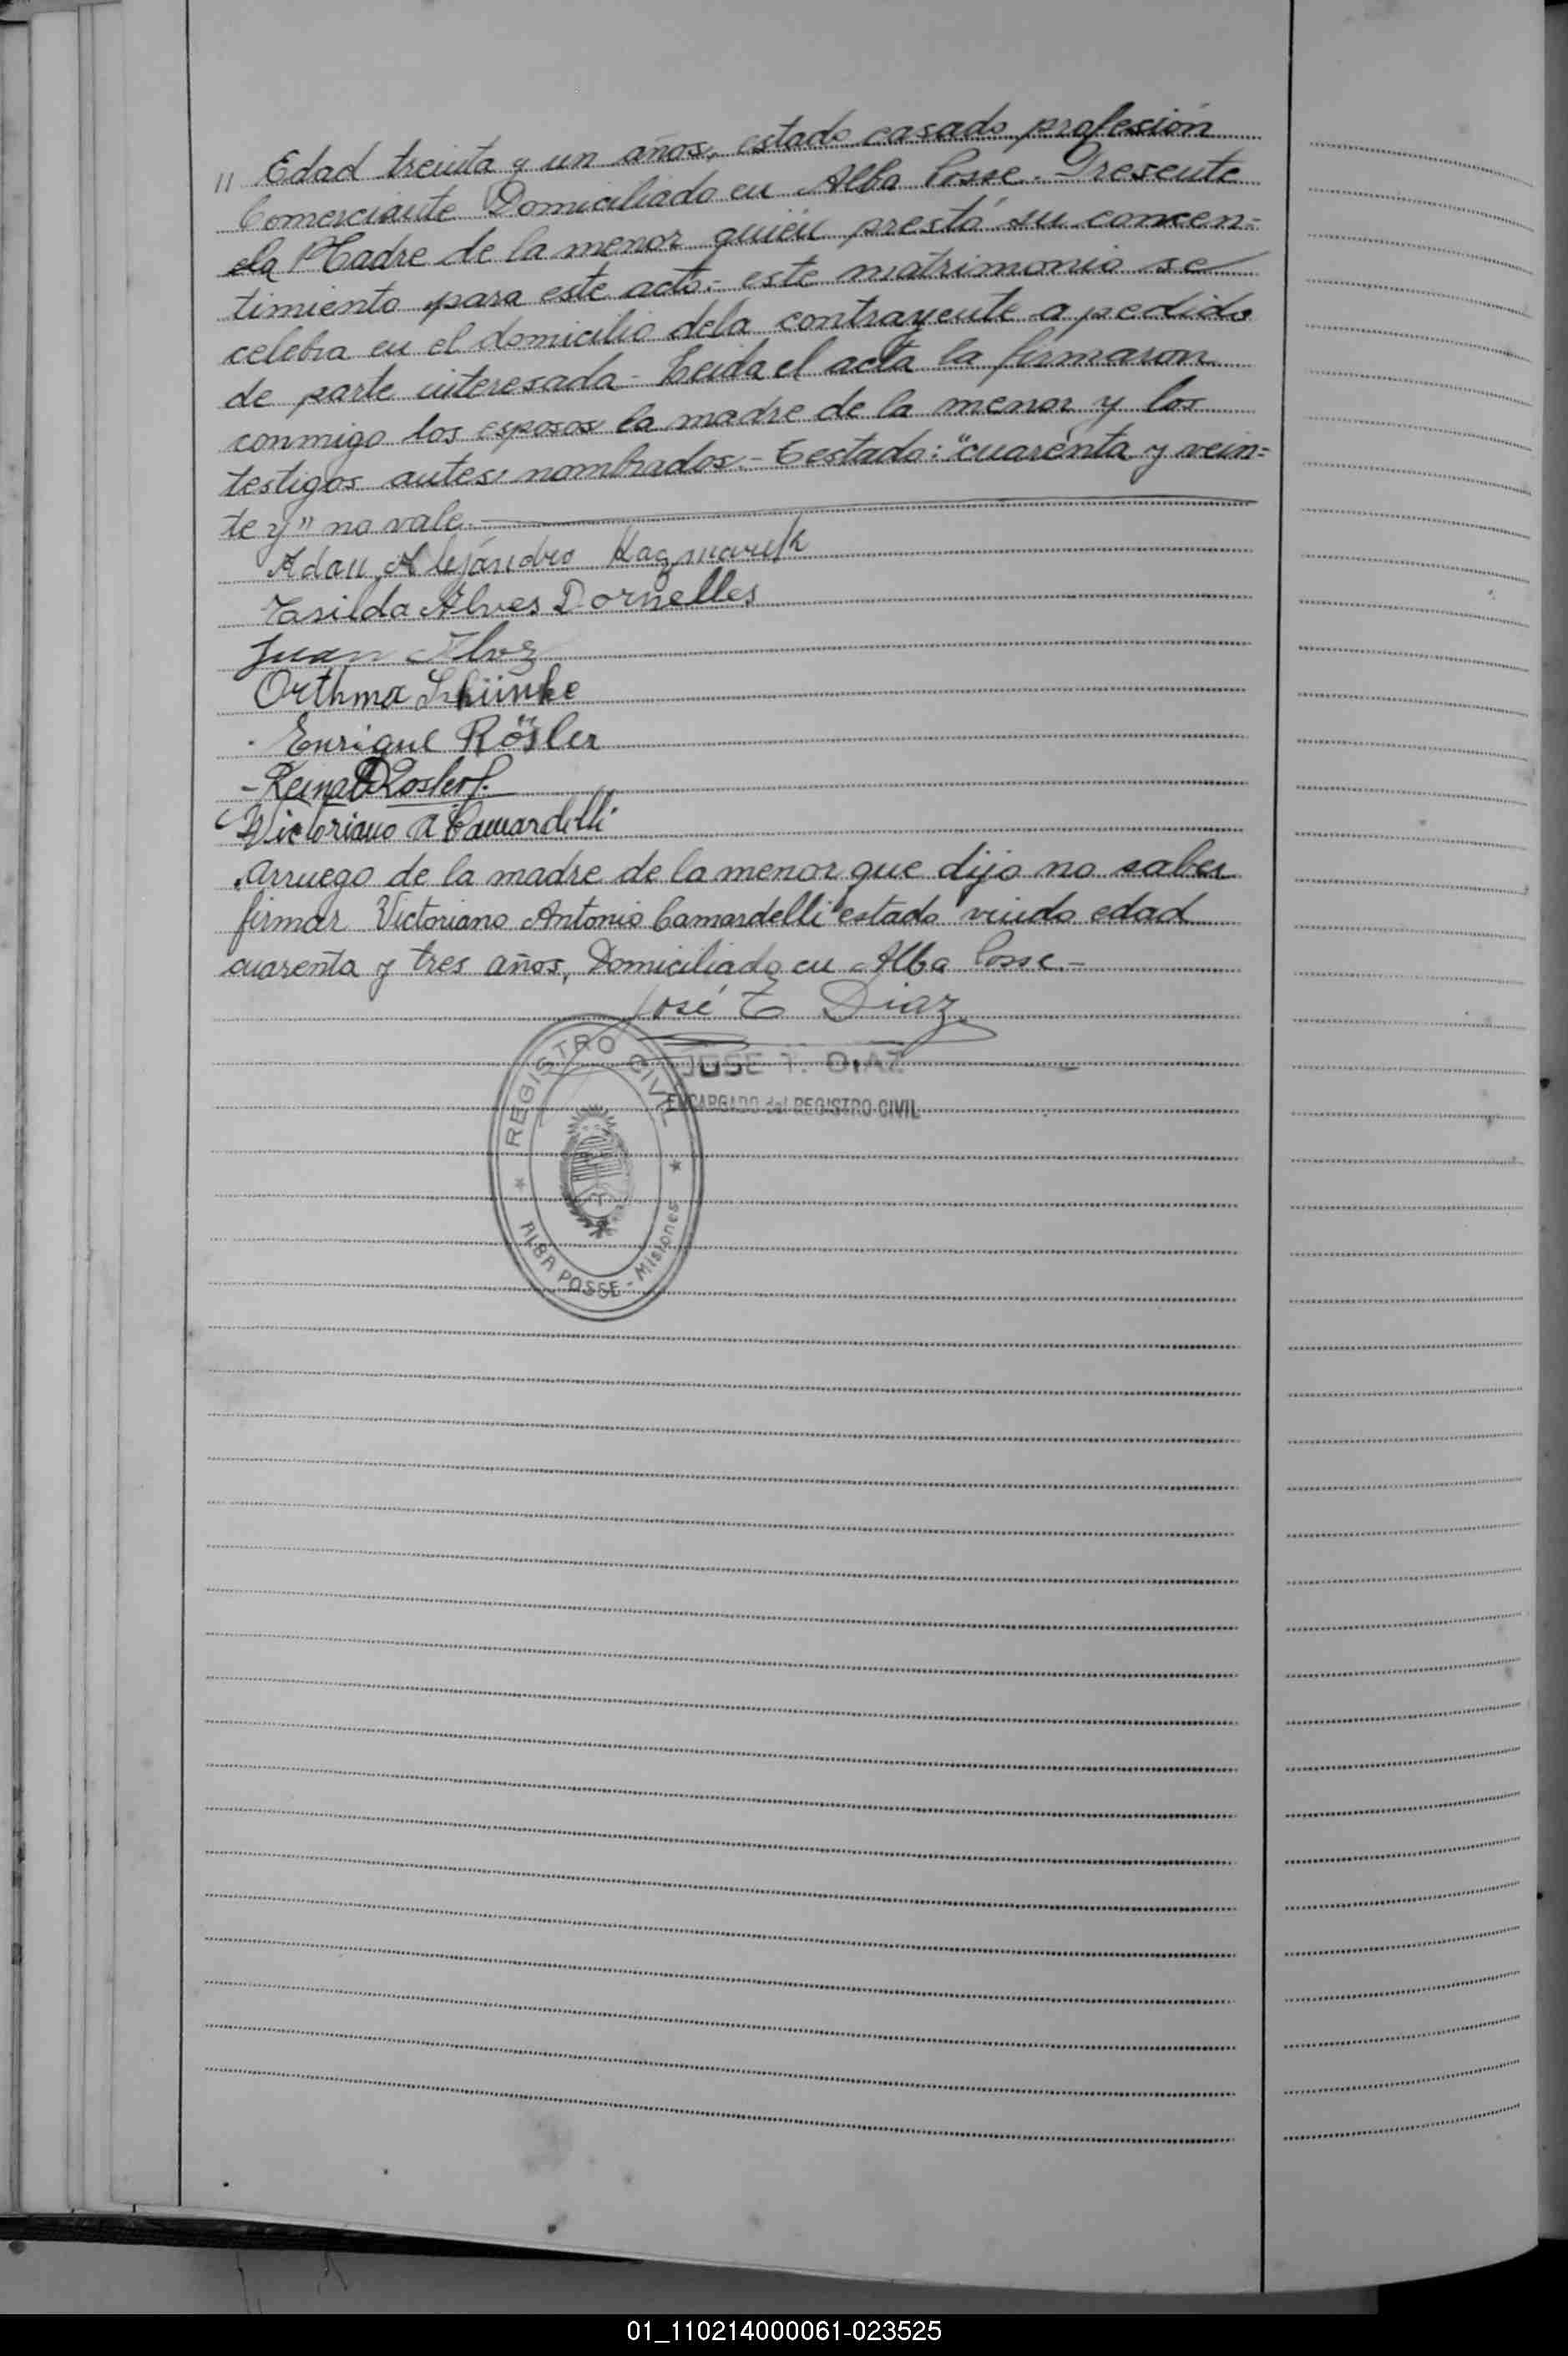 " Edad treinta y un años, estado casado profesión
Comerciante Domiciliado en Alba Posse. Presente
ela Madre de la menor quién prestó su concen=
timiento para este acto.- este matrimonio se
celebra en el domicilio dela contrayente a pedido
de parte interesada - Leida el acta la firmaron
conmigo los esposos la madre de la menor y los
testigos antes nombrados.- Testado: "cuarenta y vein=
te y" no vale.
Adan Alejándro
Casilda Alves Dornelles
Juan Alvez
Orthma Schünke
Enrique Rösler
Victoriano A Camardelli
Arruego de la madre de la menor que dijo no saber
firmar Victoriano Antonio Camardelli estado viudo edad
cuarenta y tres años, Domiciliado en Alba Posse.-
José T Diaz
JOSE T. DIAZ
ENCARGADO del REGISTRO CIVIL
REGISTRO CIVIL
ALBA POSSE - Misiones
01_110214000061-023525